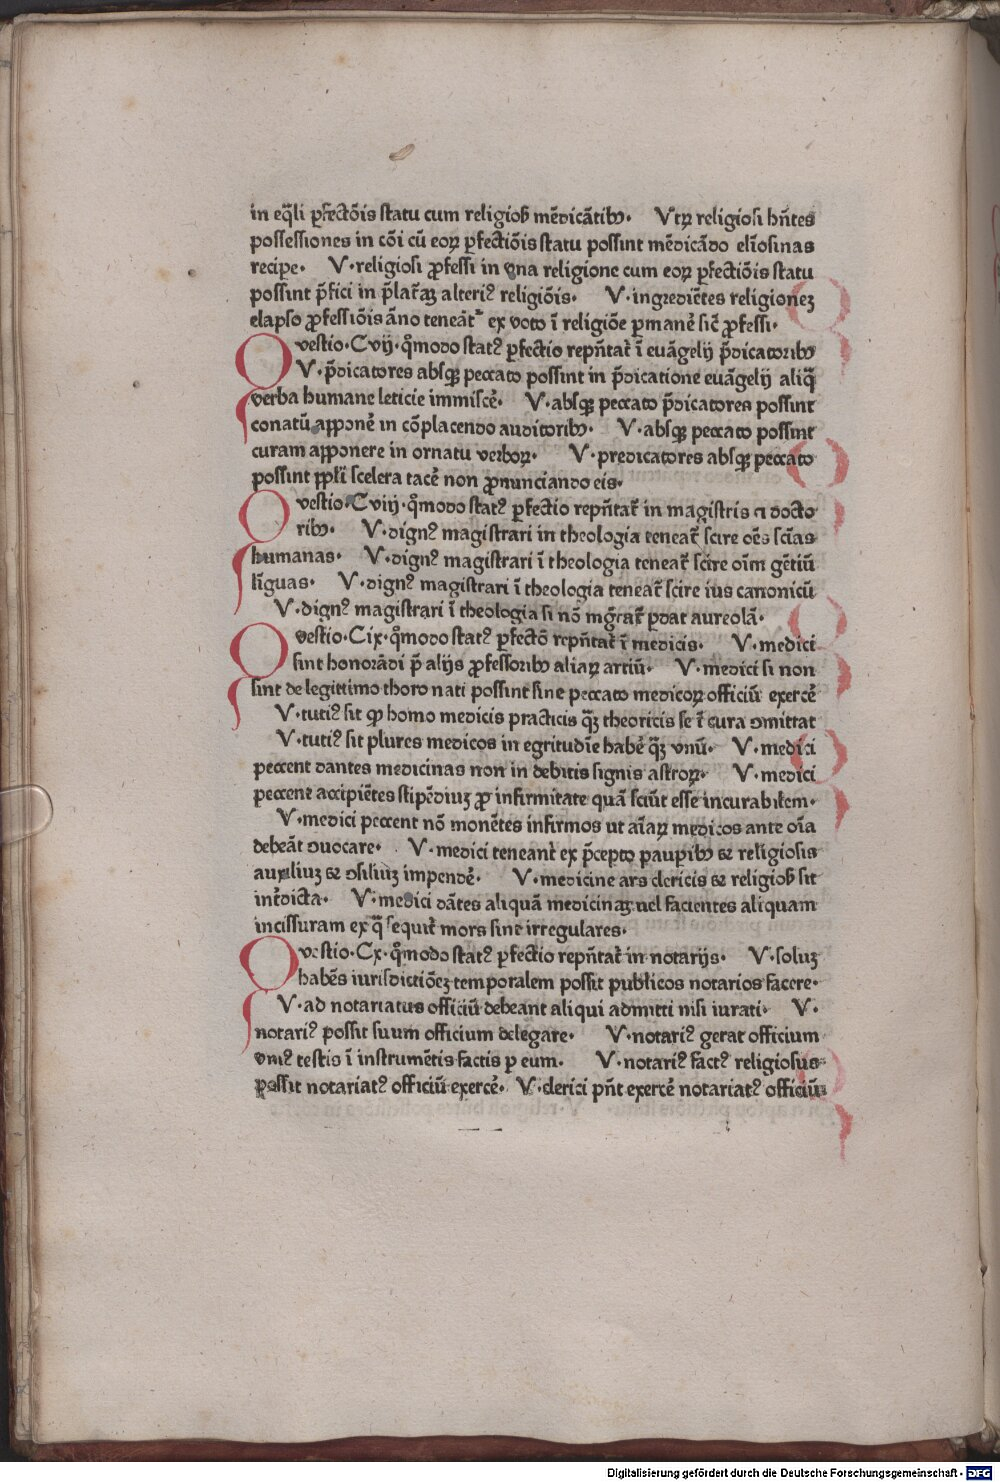 in eq̃li ꝑfectõis statu cum religiosꝭ mẽdicãtibꝰ· Vtrꝝ religiosi hñtes
possessiones in cõi cũ eorꝝ ꝑfectiõis statu possint mẽdicãdo elĩosinas
recipe· V·religiosi ꝓfessi in vna religione cum eorꝝ ꝑfectiõis statu
possint p̃fici in p̃lat̃aꝫ alteriꝰ religiõis· V·ingrediẽtes religioneꝫ
elapso ꝓfessiõis ãno teneãt᷑ ex voto ĩ religiõe ꝑmanẽ sic̃ ꝓfessi·
Questio·Cvij·q̃modo statꝰ ꝑfectio rep̃ñtat᷑ ĩ euãgelij p̃dicatoribꝰ
V·p̃dicatores absqꝫ peccato possint in p̃dicatione euãgelij aliq̃
verba humane leticie immiscẽ· V·absqꝫ peccato p̃dicatores possint
conatũ apponẽ in cõplacendo auditoribꝰ· V·absqꝫ peccato possint
curam apponere in ornatu verborꝝ· V·predicatores absqꝫ peccato
possint ppl̃i scelera tacẽ non ꝓnunciando eis·
Questio·Cviij·q̃modo statꝰ ꝑfectio rep̃ñtat᷑ in magistris ⁊ docto
ribꝰ· V·dignꝰ magistrari in theologia teneat᷑ scire oẽs sciãs
humanas· V·dignꝰ magistrari ĩ theologia teneat᷑ scire oĩm gẽtiũ
lĩguas· V·dignꝰ magistrari ĩ theologia teneat᷑ scire ius canonicũ
V·dignꝰ magistrari ĩ theologia si nõ mg̃rat᷑ ꝑdat aureolã·
Questio·Cix·q̃modo statꝰ ꝑfectõ rep̃ñtat᷑ ĩ medicis· V·medici
sint honorãdi p̃ alijs ꝓfessoribꝰ aliarꝝ artiũ· V·medici si non
sint de legittimo thoro nati possint sine peccato medicorꝝ officiũ exercẽ
V·tutiꝰ sit ꝙ homo medicis practicis q̃ꝫ theoricis se ĩ cura ꝯmittat
V·tutiꝰ sit plures medicos in egritudĩe habẽ q̃ꝫ vnũ· V·medici
peccent dantes medicinas non in debitis signis astrorꝝ· V·medici
peccent accipiẽtes stipẽdiuꝫ ꝓ infirmitate quã sciũt esse incurabilem·
V·medici peccent nõ monẽtes infirmos ut aĩarꝝ medicos ante oĩa
debeãt ꝺuocare· V·medici teneant᷑ ex p̃cepto pauꝑibꝰ et religiosis
auxiliuꝫ et ꝯsiliuꝫ impendẽ· V·medicine ars clericis et religiosꝭ sit
int᷑dicta· V·medici dãtes aliquã medicinaꝫ uel facientes aliquam
incissuram ex q̃ sequit᷑ mors sint irregulares·
Questio·Cx·q̃modo statꝰ ꝑfectio rep̃ñtat᷑ in notarijs· V·soluꝫ
habẽs iurisdictiõeꝫ temporalem possit publicos notarios facere·
V·ad notariatus officiũ debeant aliqui admitti nisi iurati· V·
notariꝰ possit suum officium delegare· V·notariꝰ gerat officium
vniꝰ testis ĩ instrumẽtis factis ꝑ eum· V·notariꝰ factꝰ religiosus
possit notariatꝰ officiũ exercẽ· V·clerici pñt exercẽ notariatꝰ officiũ
Digitalisierung gefördert durch die Deutsche Forschungsgemeinschaft · DFG